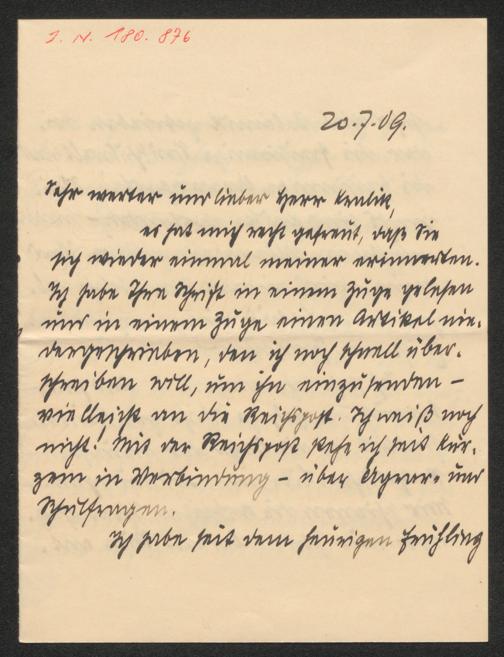 I. N. 180.876
20.7.09.
Sehr werter und lieber Herr Kralik,
es hat mich recht gefreut, daß Sie
sich wieder einmal meiner erinnerten.
Ich habe Ihre Schrift in einem Zuge gelesen
und in einem Zuge einen Artikel nie-
dergeschrieben, den ich noch schnell über-
schreiben will, um ihn einzusenden –
vielleicht an die Reichspost. Ich weiß noch
nicht! Mit der Reichspost stehe ich seit kur-
zem in Verbindung – über Agrar- und
Schulfragen.
Ich habe seit dem heurigen Frühling